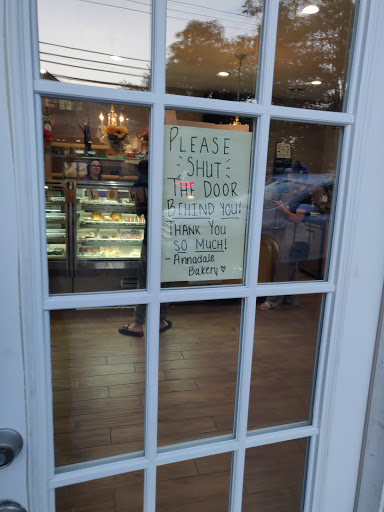 PLEASE
SHUT
THE DOOR
BEHIND YOU!
THANK YOU
SO MUCH!
- Annadale
Bakery ♡